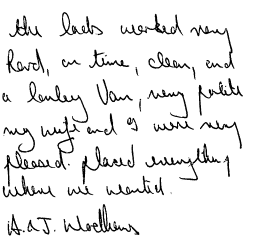 the lads worked very
hard, on time, clean, and
a lovley Van, very polite
my wife and I were very
pleased. placed everything
where we wanted.
A. & J. Matthews